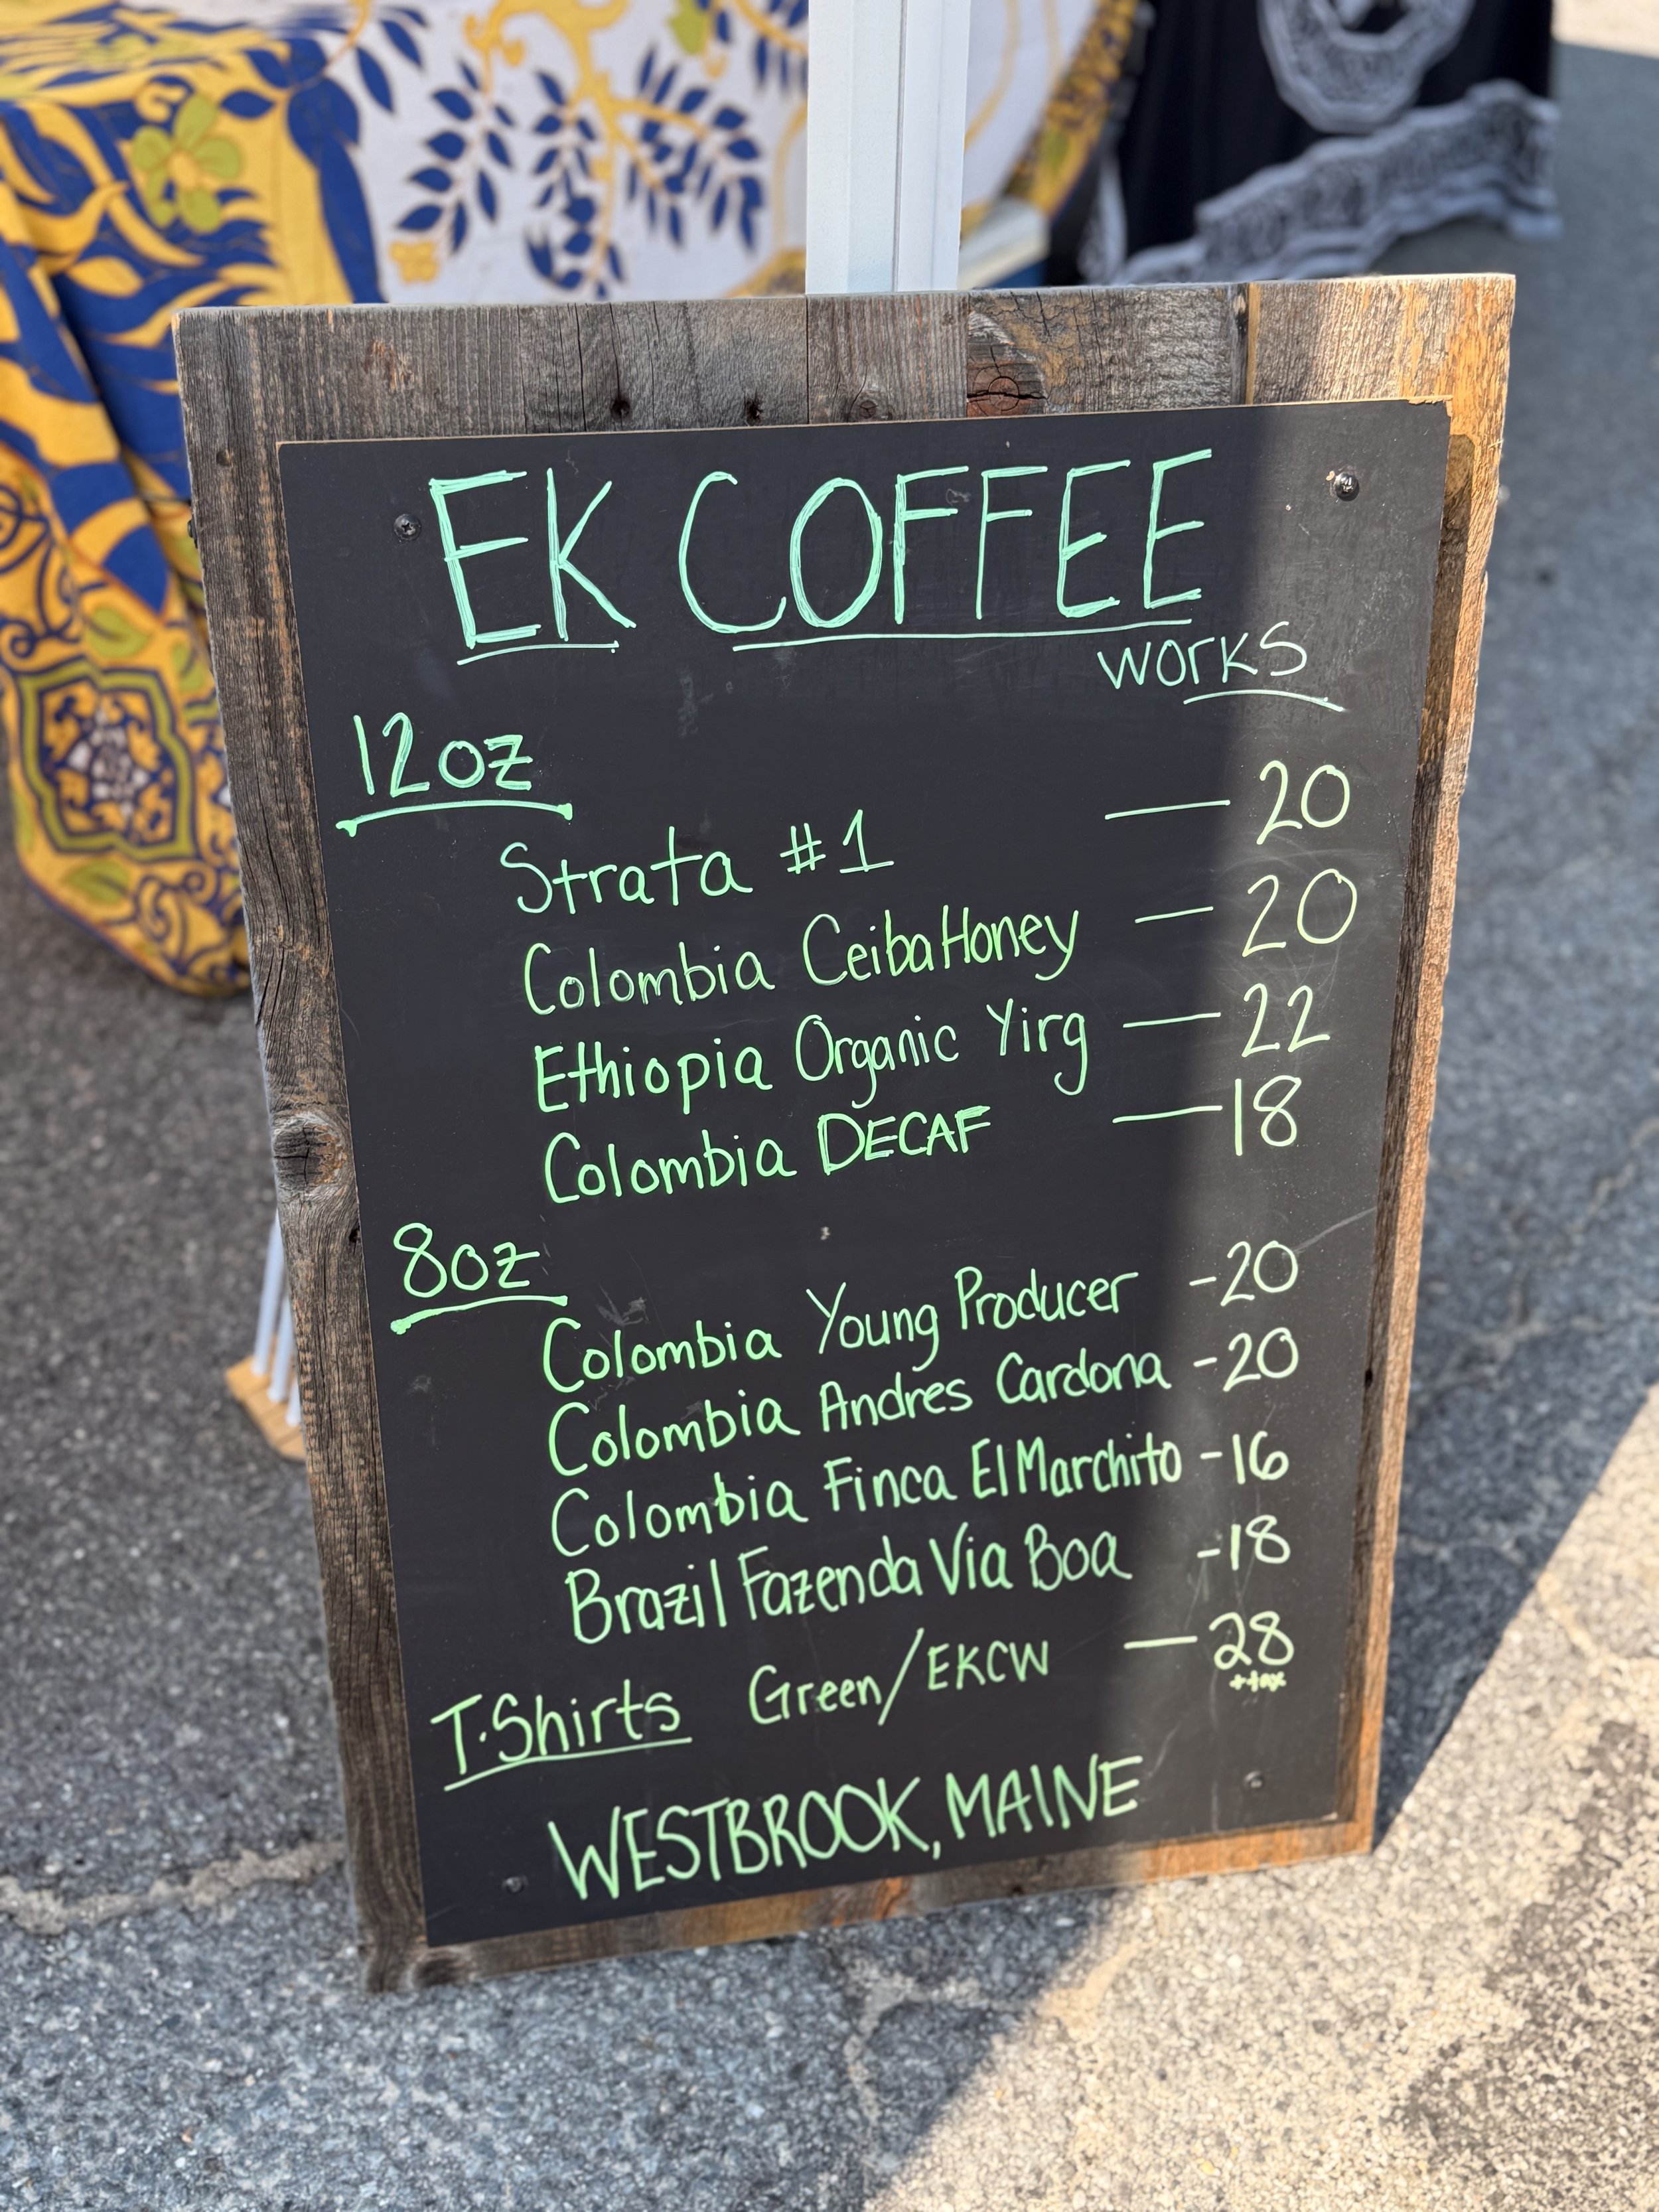 EK COFFEE
WORKS
12oz
Strata #1 — 20
Colombia Ceiba Honey — 20
Ethiopia Organic Yirg — 22
Colombia DECAF — 18
8oz
Colombia Young Producer - 20
Colombia Andres Cardona - 20
Colombia Finca El Marchito - 16
Brazil Fazenda Via Boa - 18
T-Shirts Green/EKCW — 28
+tax
WESTBROOK, MAINE